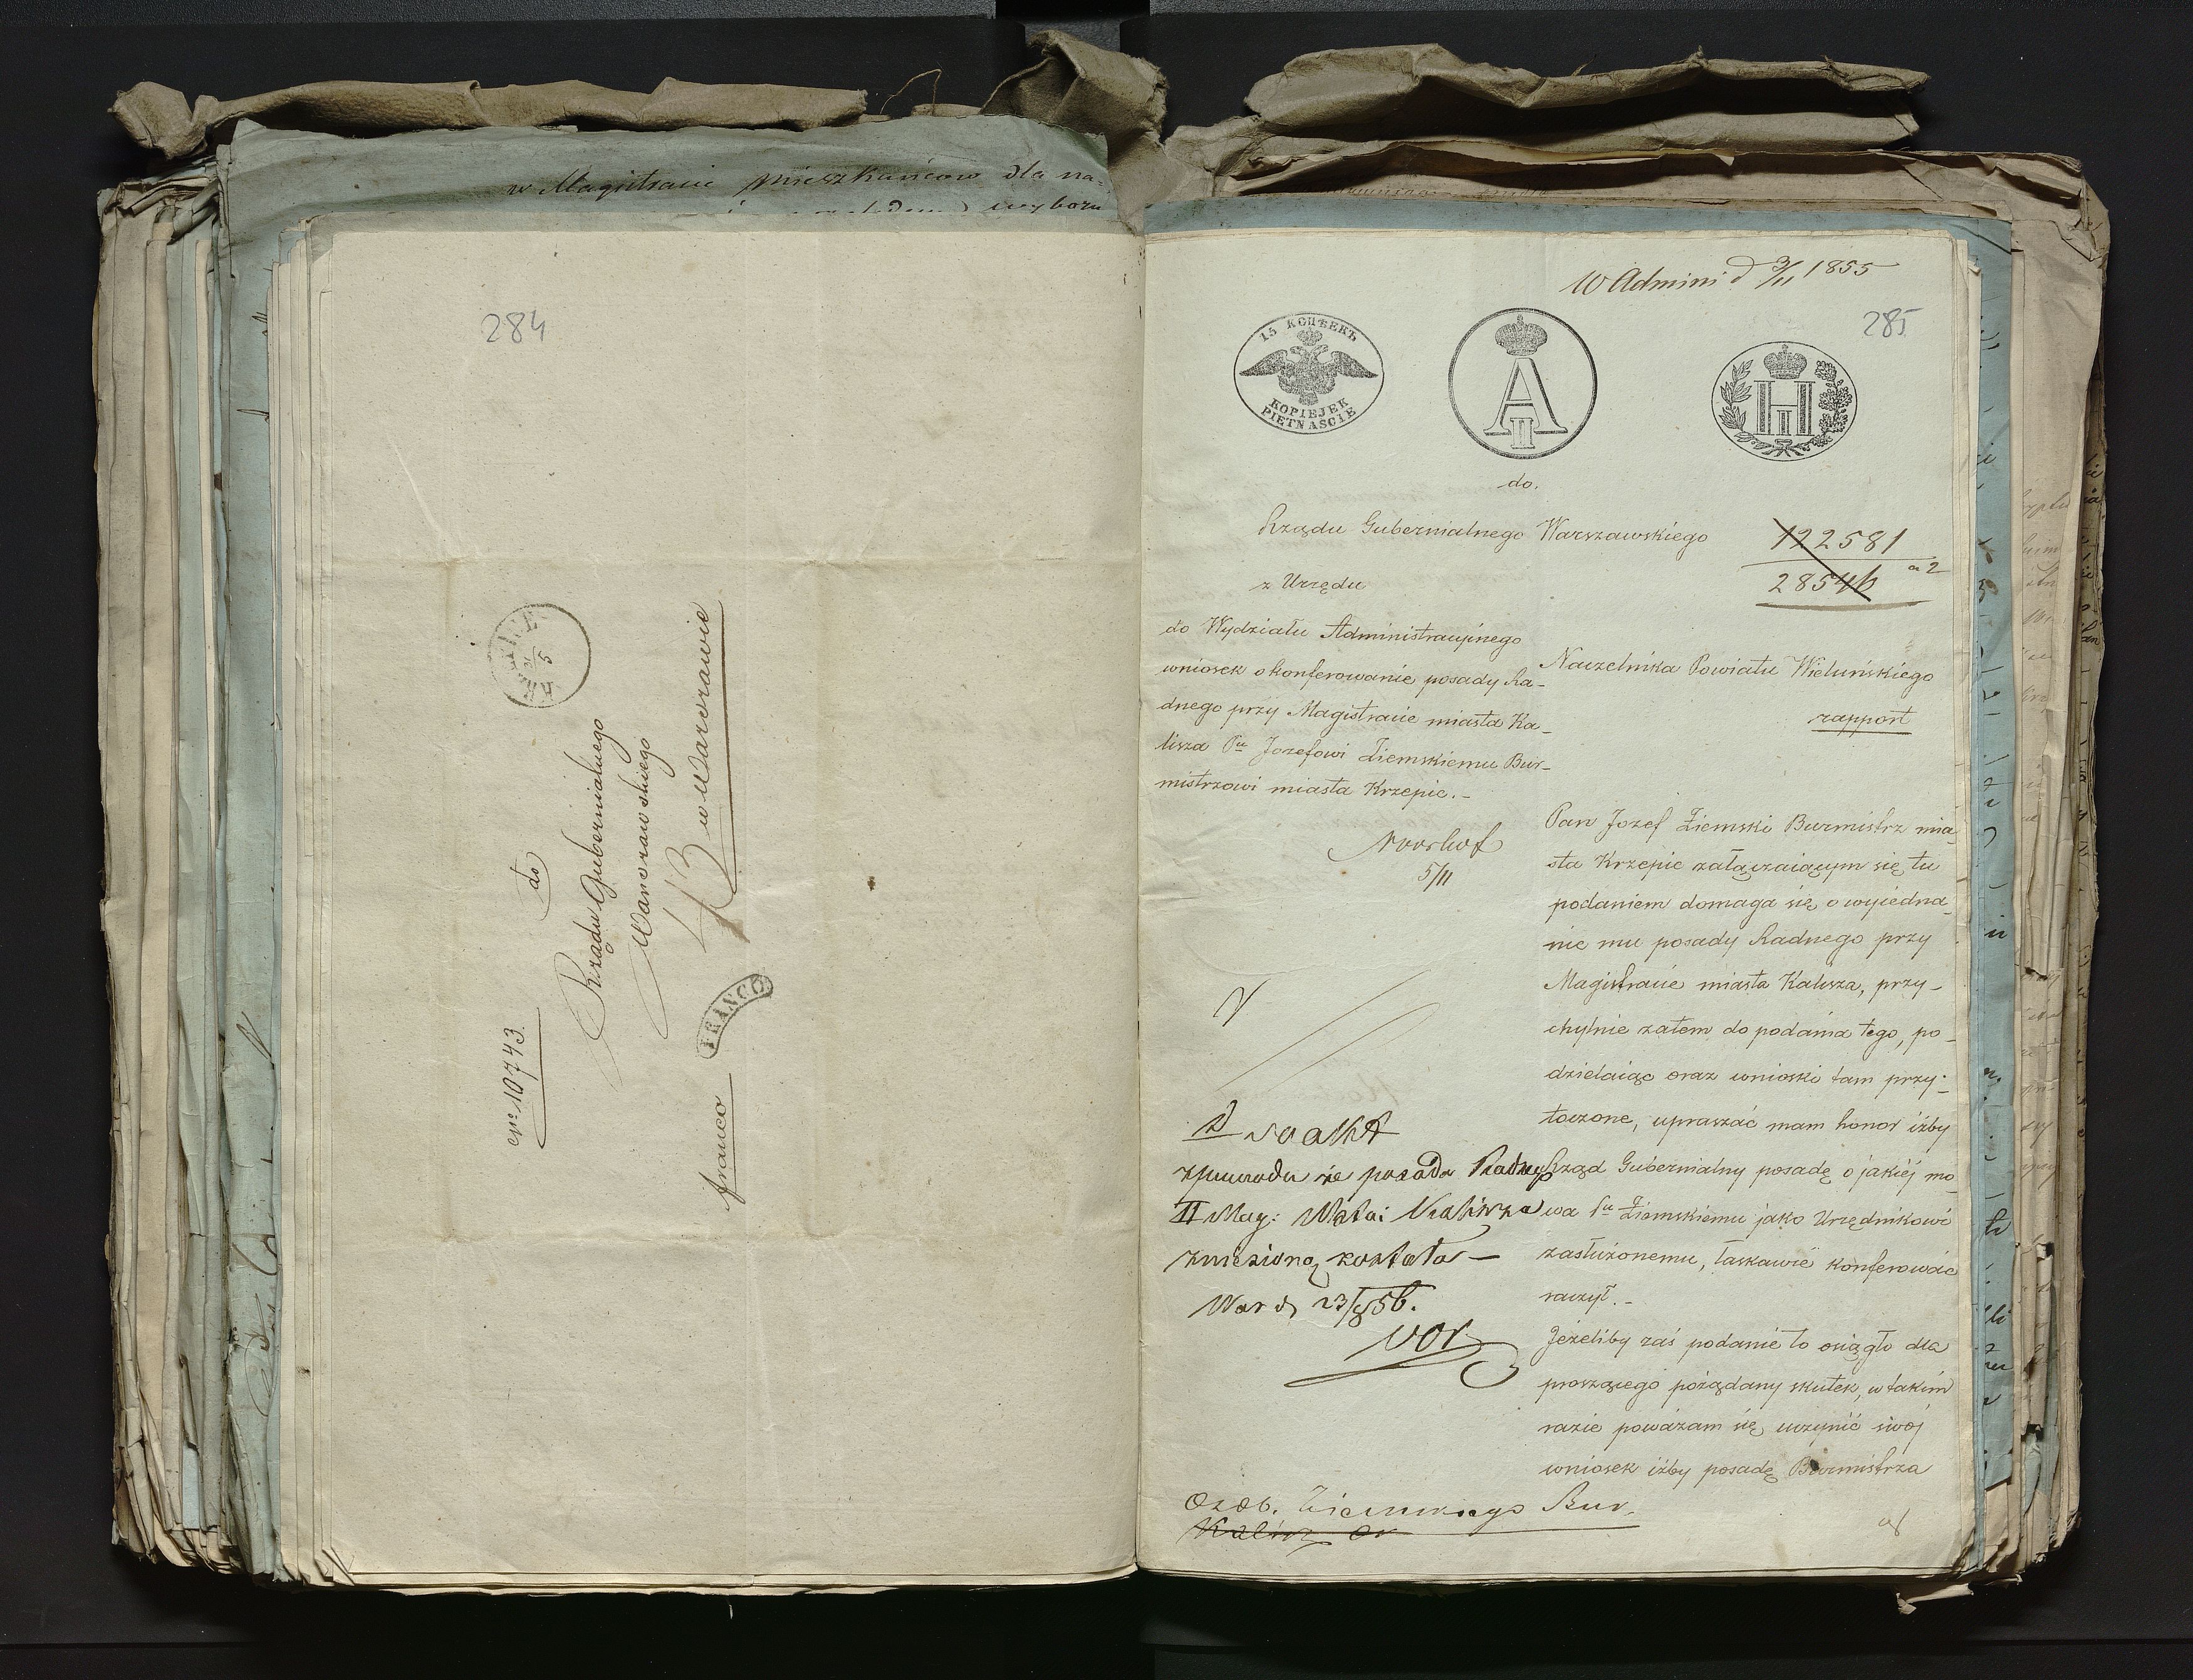 w Magistracie Mieszkańców dla na=
wyboru
284
KRZEPICE
5
No 10743.
do
Rządu Gubernialnego
Warszawskiego
w Warszawie
franco
FRANCO
W Admini d 3/11 1855
285
15 КОПѢЕКЪ
KOPIEJEK
PIETNAŚCIE
A II
Н II
do.
Rządu Gubernialnego Warszawskiego
122581
28546 a 2
z Urzędu
do Wydziału Administracyinego
wniosek o konferowanie posady Ra-
dnego przy Magistracie miasta Ka-
lisza Pu Jozefowi Ziemskiemu Bur-
mistrzowi miasta Krzepic.-
Naczelnika Powiatu Wieluńskiego
rapport
5/11
Pan Jozef Ziemski Burmistrz mia-
sta Krzepic załączaiącym się tu
podaniem domaga się o wyiedna-
nie mu posady Radnego przy
Magistracie miasta Kalisza, przy-
chylnie zatem do podania tego, po-
dzielaiąc oraz wnioski tam przy-
toczone, upraszać mam honor iżby
Rząd Gubernialny posadę o jakiéj mo-
wa Pu Ziemskiemu jako Urzędnikowi
zasłużonemu, łaskawie konferować
raczył.-
Jeżeliby zaś podanie to osiągło dla
proszącego pożądany skutek, w takim
razie poważam się uczynić swoj
wniosek iżby posadę Burmistrza
ad acta
z powodu że posada Radnego
II Mag: Miasta Kalisza
zniesioną została —
War d 23/8 56.
Osob. Ziemskiego Bur.
Kalisz